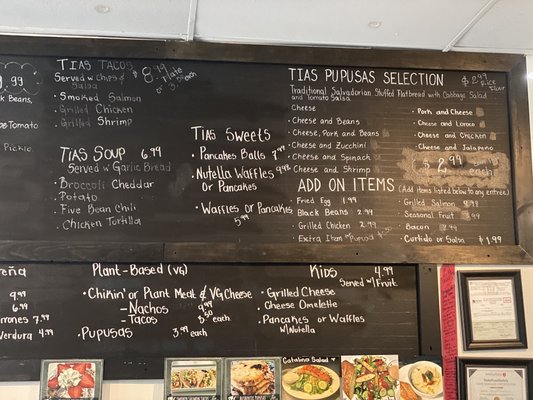 9.99
Black Beans,
Tomato
Pickle
TIAS TACOS
Served w/ Chips &
Salsa
$8.99 Plate
or
3.50 each
• Smoked Salmon
• Grilled Chicken
• Grilled Shrimp
TIAS SOUP 6.99
Served w/ Garlic Bread
• Broccoli Cheddar
• Potato
• Five Bean Chili
• Chicken Tortilla
TIAS Sweets
• Pancakes Balls 7.99
• Nutella Waffles 9.99
or Pancakes
• Waffles or Pancakes
5.99
TIAS PUPUSAS SELECTION
$2.99
Rice
Flour
Traditional Salvadorian Stuffed Flatbread with Cabbage Salad
and Tomato Salsa
• Cheese
• Cheese and Beans
• Cheese, Pork and Beans
• Cheese and Zucchini
• Cheese and Spinach
• Cheese and Shrimp
• Pork and Cheese
• Cheese and Loroco
• Cheese and Chicken
• Cheese and Jalapeno
$2.99 each
ADD ON ITEMS (Add items listed below to any entree)
Fried Egg 1.99
Black Beans 2.99
Grilled Chicken 2.99
Extra Item Pupusa
Grilled Salmon
Seasonal Fruit
Bacon
Curtido or Salsa $1.99
eña
9.99
6.99
Verdura 4.99
Plant-Based (VG)
• Chikin' or Plant Meat & VG Cheese
– Nachos 9.99
– Tacos 3.50 each
• Pupusas 3.99 each
Kids 4.99
Served w/ Fruit
• Grilled Cheese
• Cheese Omelette
• Pancakes or Waffles
w/ Nutella
Catalina Salad